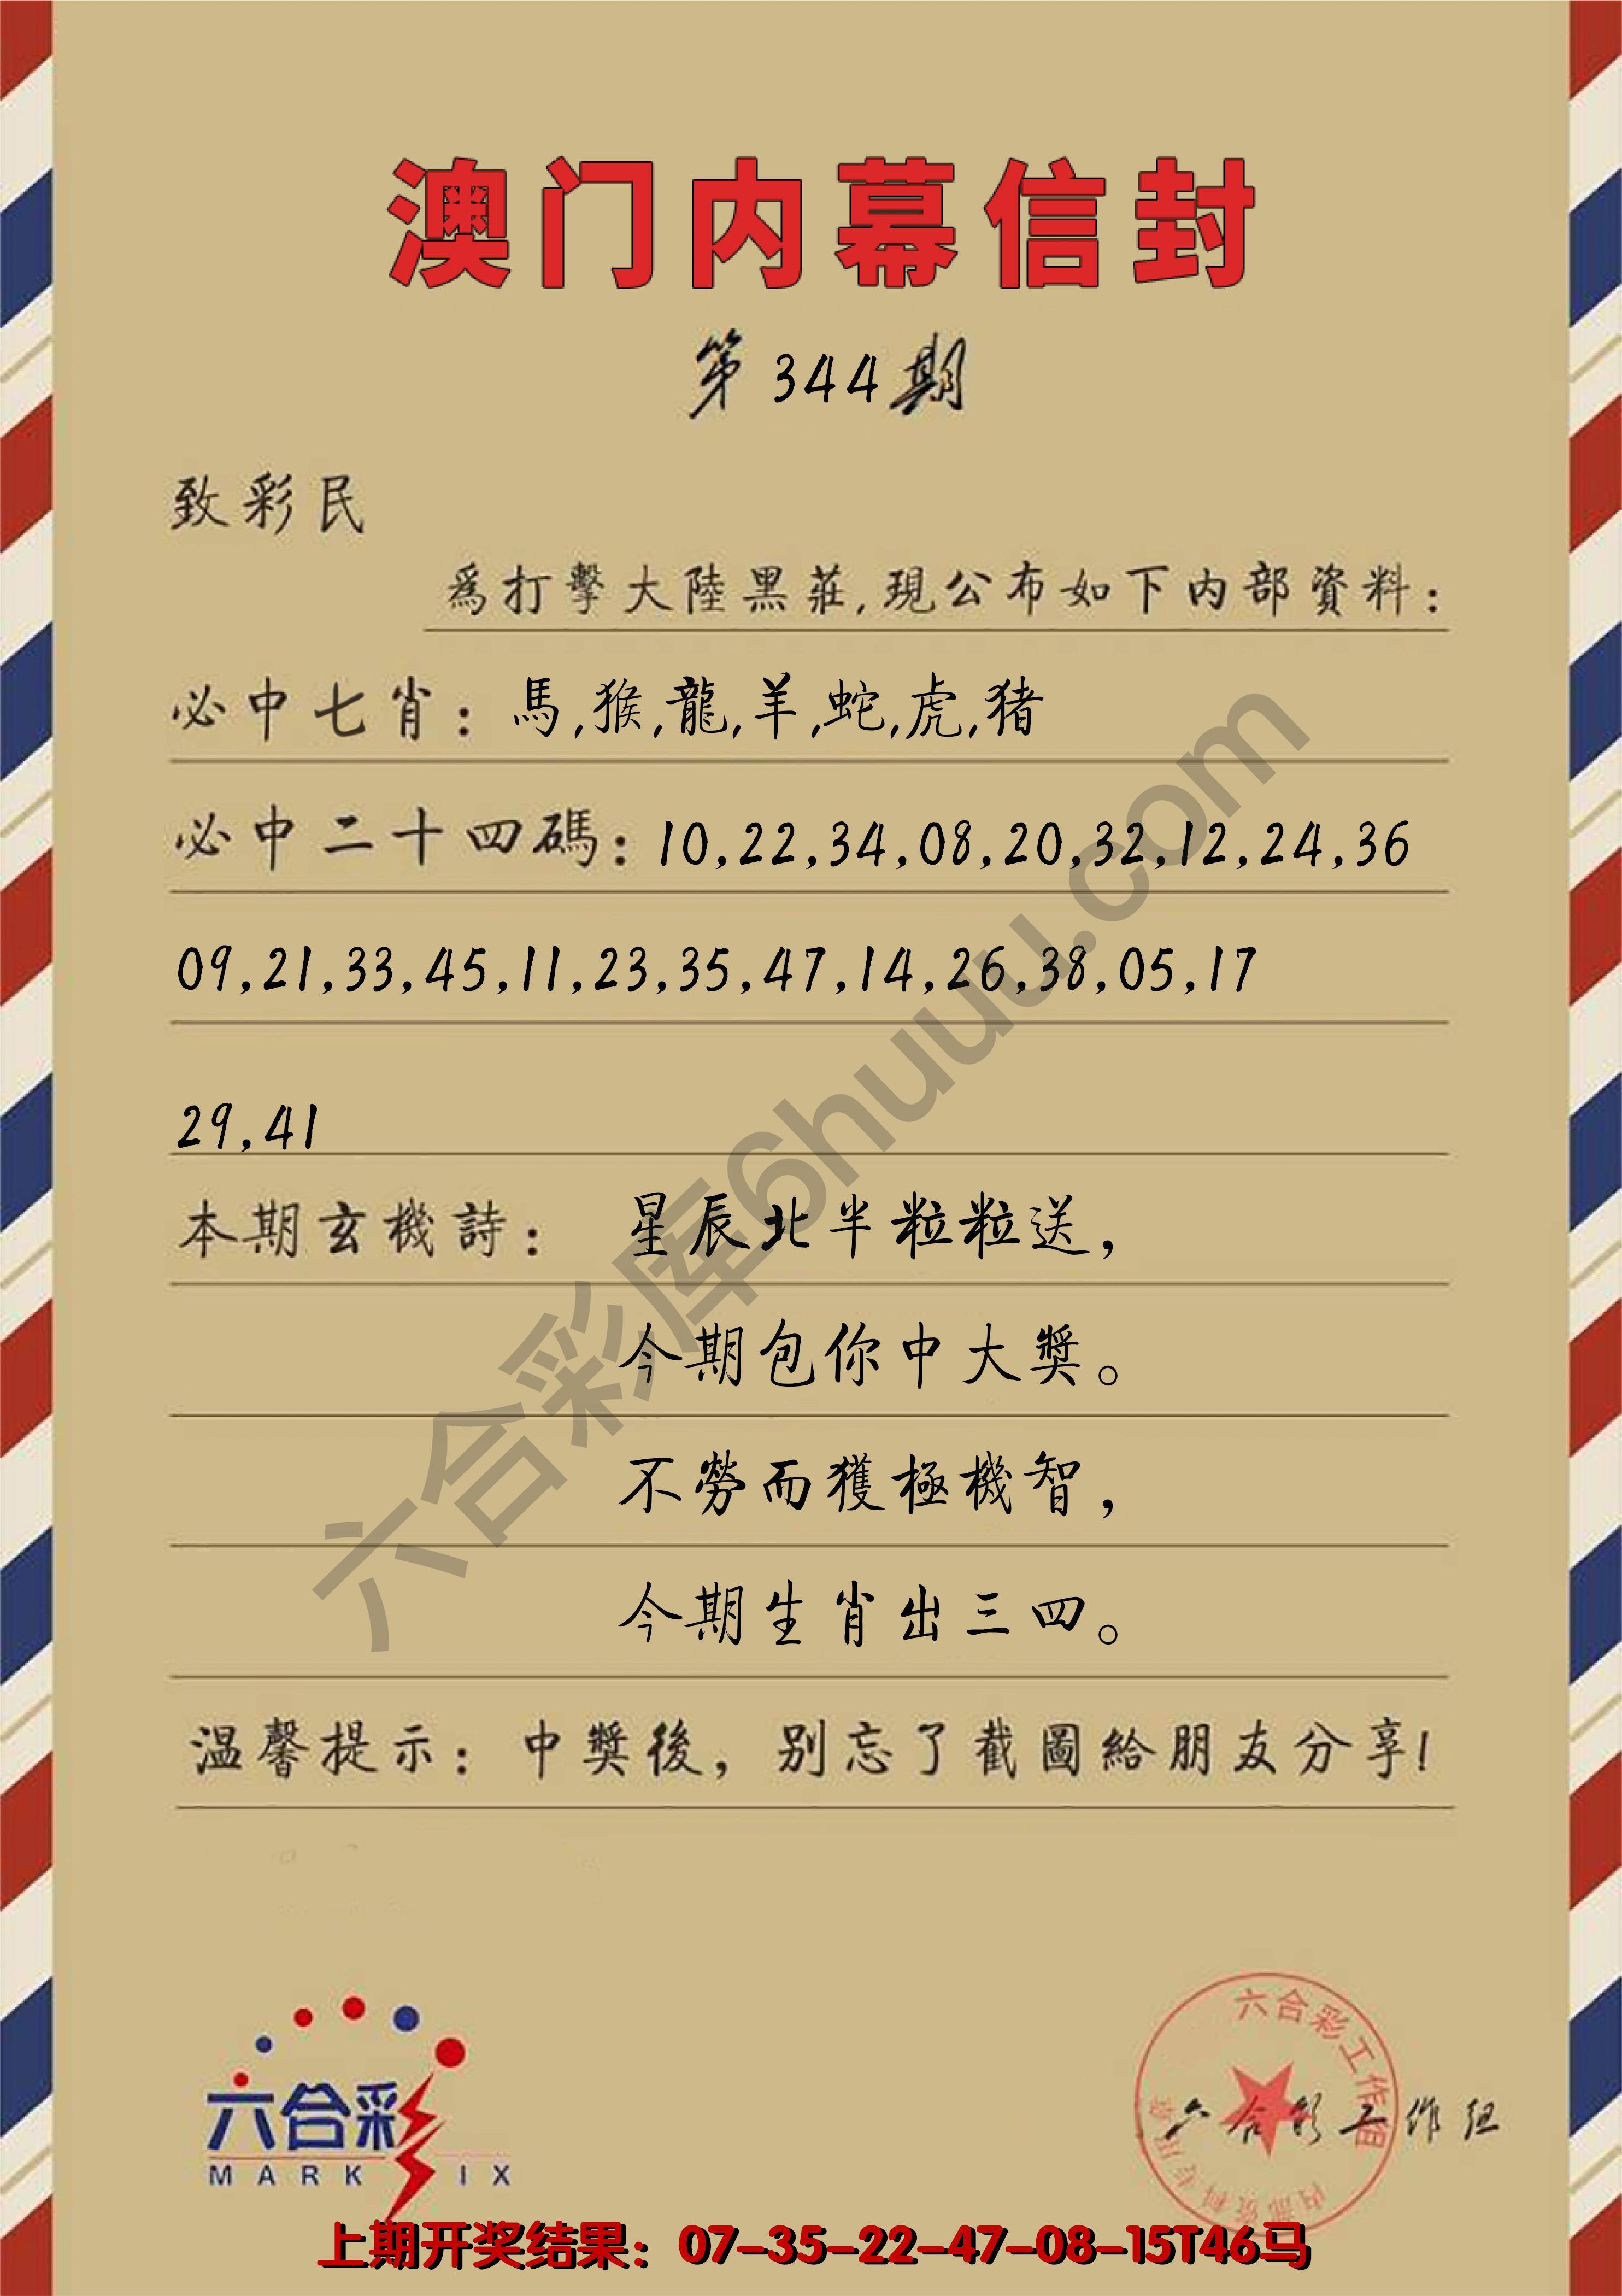 澳门内幕信封
第344期
致彩民
爲打擊大陸黑莊,現公布如下内部資料:
必中七肖: 馬,猴,龍,羊,蛇,虎,猪
必中二十四碼: 10,22,34,08,20,32,12,24,36
09,21,33,45,11,23,35,47,14,26,38,05,17
29,41
本期玄機詩: 星辰北半粒粒送,
今期包你中大獎。
不勞而獲極機智,
今期生肖出三四。
温馨提示: 中獎後, 别忘了截圖給朋友分享!
六合彩库6huuu.com
六合彩
MARK SIX
六合彩工作组
内部资料专用章
六合彩工作组
上期开奖结果: 07-35-22-47-08-15T46马